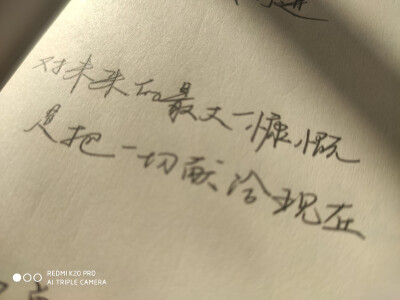 对未来的最大慷慨
是把一切献给现在
REDMI K20 PRO
AI TRIPLE CAMERA